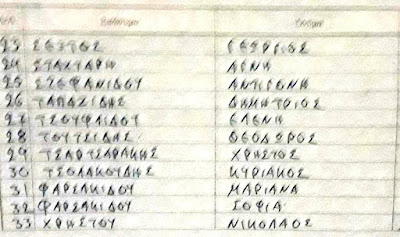 Επώνυμο Όνομα
23 ΣΕΣΤΟΣ ΓΕΩΡΓΙΟΣ
24 ΣΤΑΧΤΑΡΗ ΑΓΝΗ
25 ΣΤΕΦΑΝΙΔΟΥ ΑΝΤΙΓΟΝΗ
26 ΤΑΠΑΖΙΔΗΣ ΔΗΜΗΤΡΙΟΣ
27 ΤΣΟΥΦΛΙΔΟΥ ΕΛΕΝΗ
28 ΤΟΥΤΣΙΔΗΣ ΘΕΟΔΩΡΟΣ
29 ΤΣΑΡΤΣΑΡΑΚΗΣ ΧΡΗΣΤΟΣ
30 ΤΣΟΛΑΚΟΥΔΗΣ ΚΥΡΙΑΚΟΣ
31 ΦΑΡΣΑΚΙΔΟΥ ΜΑΡΙΑΝΑ
32 ΦΑΡΣΑΚΙΔΟΥ ΣΟΦΙΑ
33 ΧΡΗΣΤΟΥ ΝΙΚΟΛΑΟΣ